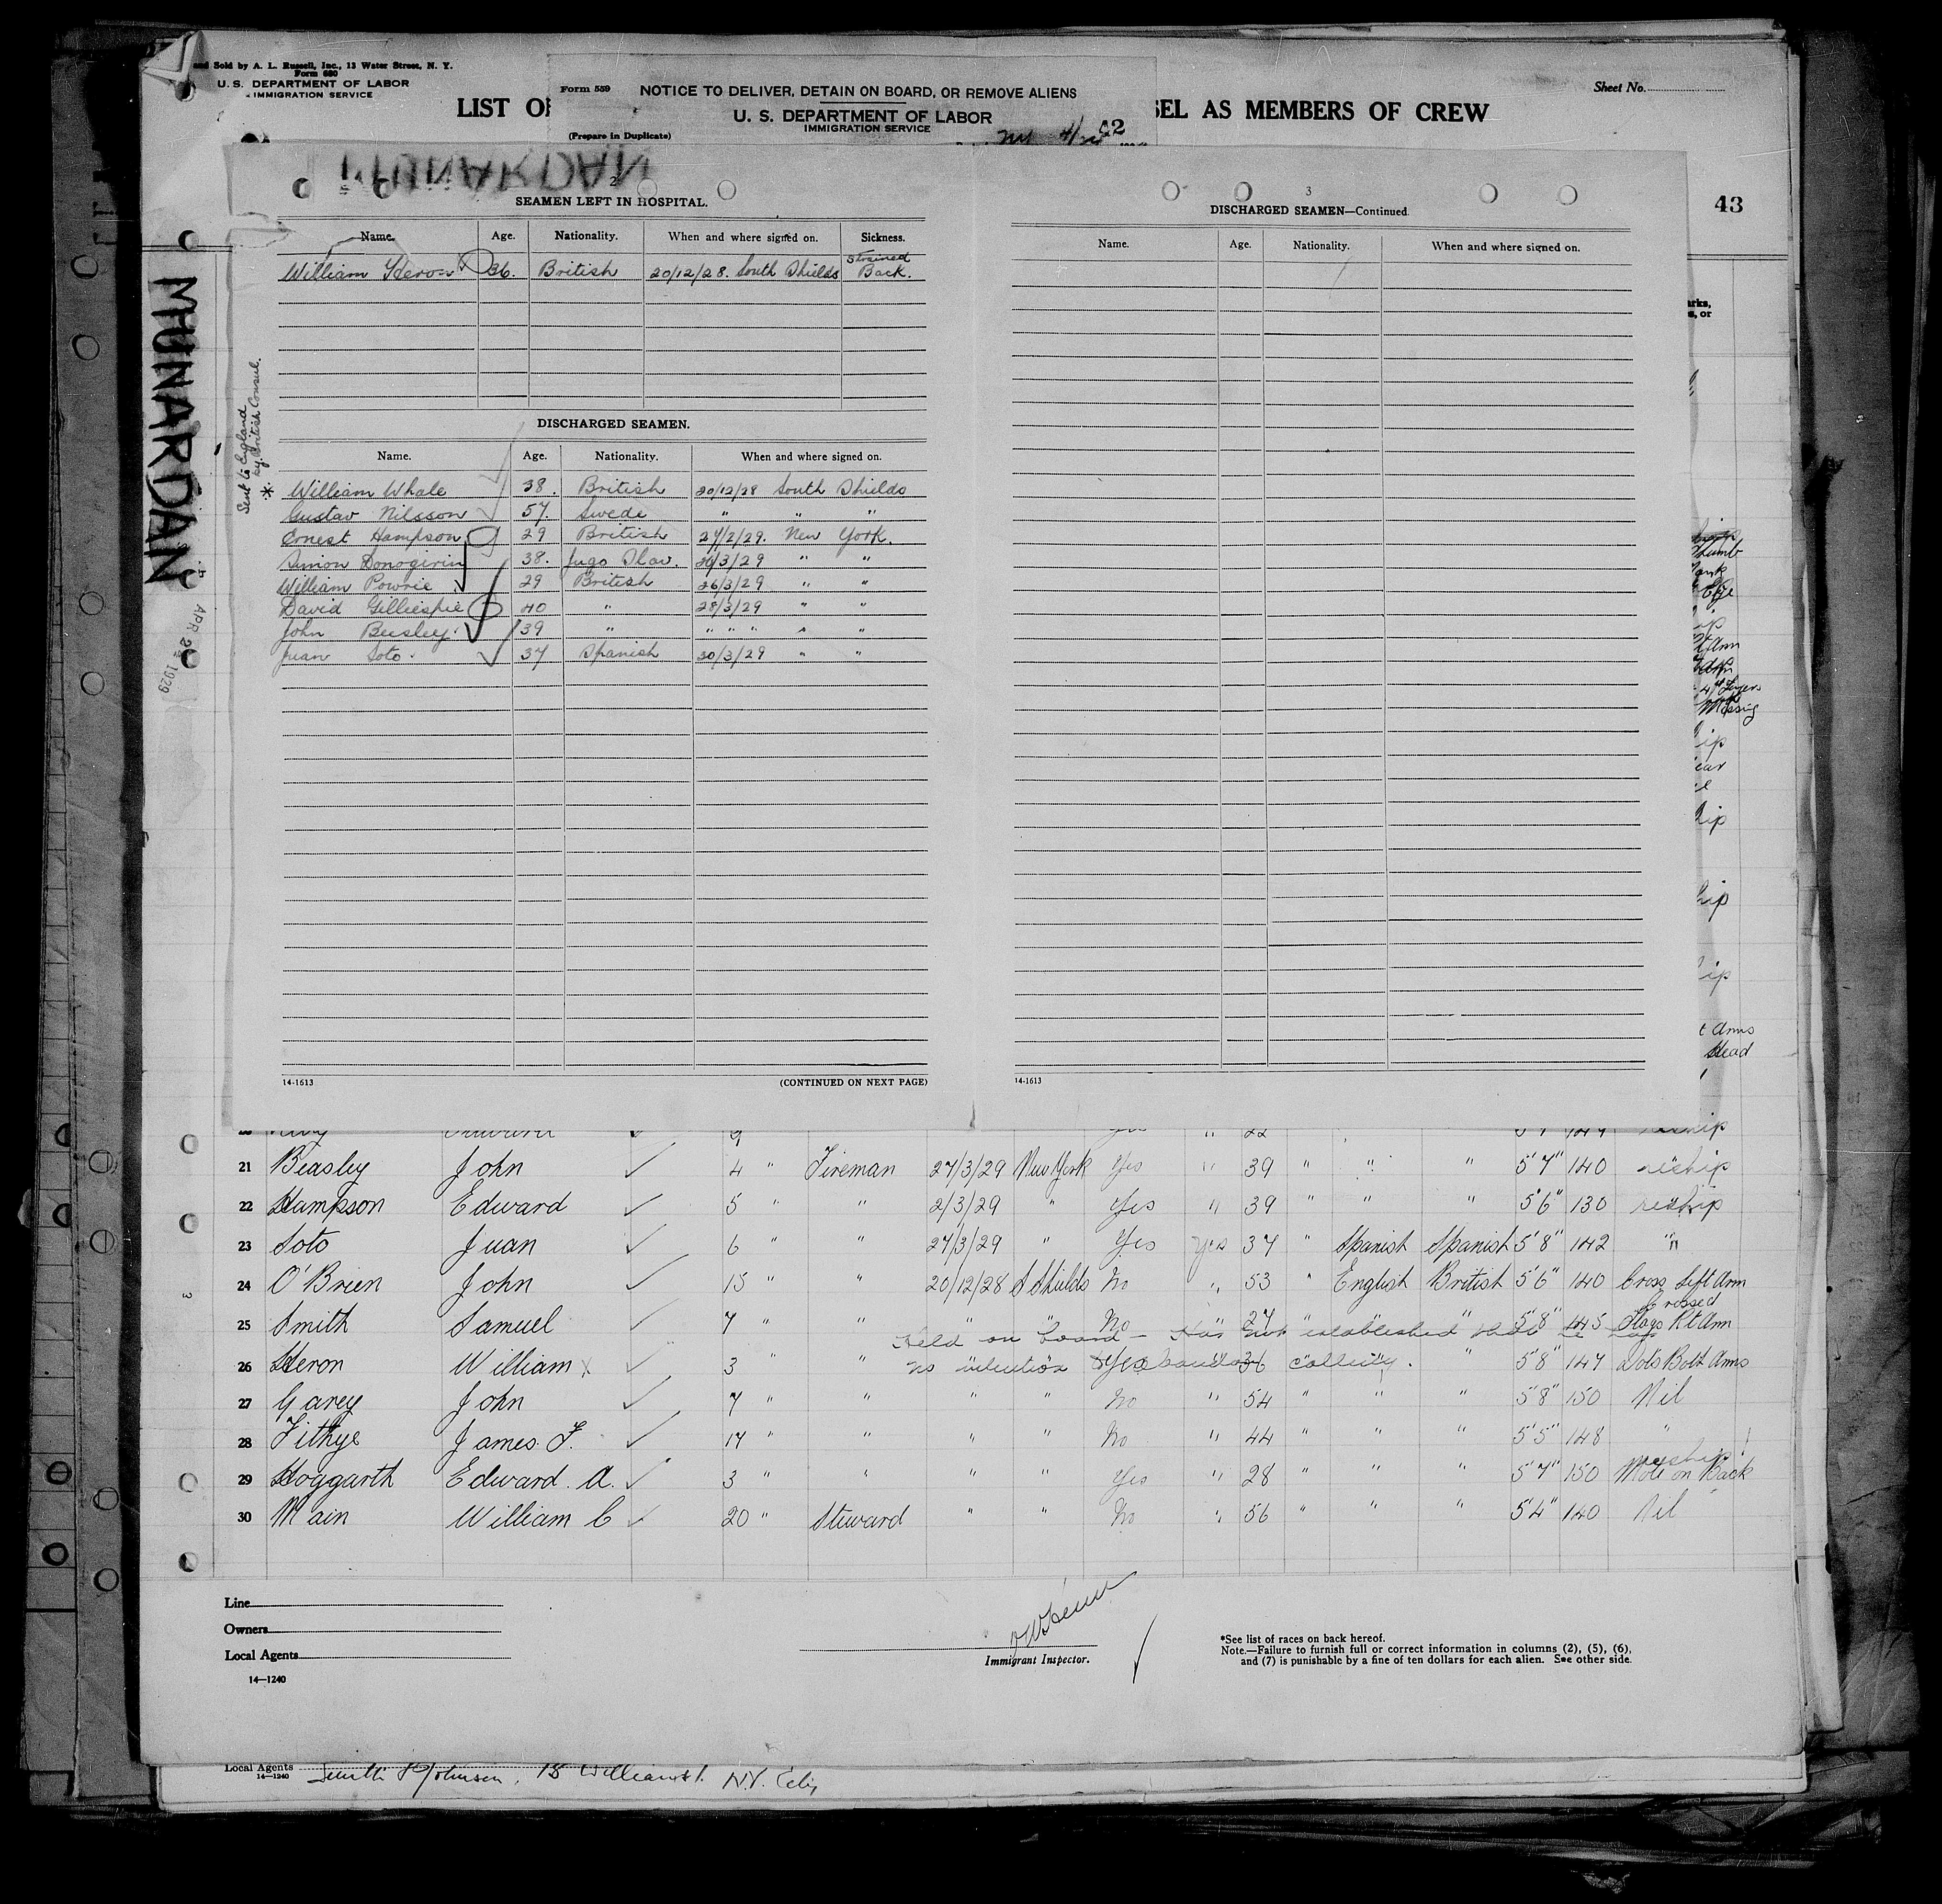 and Sold by A. L. Russell, Inc., 13 Water Street, N. Y.
Form 680
U. S. DEPARTMENT OF LABOR
IMMIGRATION SERVICE
LIST OF
Form 559
NOTICE TO DELIVER, DETAIN ON BOARD, OR REMOVE ALIENS
U. S. DEPARTMENT OF LABOR
IMMIGRATION SERVICE
(Prepare in Duplicate)
SEL AS MEMBERS OF CREW
Sheet No.
43
MUNARDAN
MUNARDAN
APR 2 1929
Sent to England
by British Consul.
*
2
SEAMEN LEFT IN HOSPITAL.
Name. Age. Nationality. When and where signed on. Sickness.
William Heron 36. British 20/12/28. South Shields Strained Back.
DISCHARGED SEAMEN.
Name. Age. Nationality. When and where signed on.
William Whale 38. British 20/12/28 South Shields
Gustav Nilsson 57. Swede " " "
Ernest Hampson 29 British 27/2/29. New York.
Simon Donogirin 38. Jugo Slav. 26/3/29 " "
William Powrie 29 British 26/3/29 " "
David Gillespie 40 " 28/3/29 " "
John Beesley. 39 " " " " " "
Juan Soto. 37 Spanish 30/3/29 " "
14-1613 (CONTINUED ON NEXT PAGE)
3
DISCHARGED SEAMEN—Continued
Name. Age. Nationality. When and where signed on.
14-1613
arks,
s, or
Thumb
Eye
4 Fingers
Missing
Arms
Head
21 Beasley John ✓ 4 " Fireman 27/3/29 New York Yes " 39 " " " 5'7" 140 reship
22 Hampson Edward ✓ 5 " " 2/3/29 " Yes " 39 " " " 5'6" 130 reship
23 Soto Juan ✓ 6 " " 27/3/29 " Yes Yes 37 " Spanish Spanish 5'8" 142 "
24 O'Brien John ✓ 15 " " 20/12/28 S Shields No " 53 " English British 5'6" 140 Cross Left Arm
25 Smith Samuel ✓ 7 " " " " No " 27 " " " 5'8" 145 Crossed Flags Rt Arm
Held on board - Has not established that he has
no intention to abandon calling.
26 Heron William x ✓ 3 " " Yes 36 " 5'8" 147 Dots Both Arms
27 Garey John ✓ 7 " " " " No " 54 " " " 5'8" 150 Nil
28 Fithye James. F. ✓ 17 " " " " No " 44 " " " 5'5" 148 "
29 Hoggarth Edward. A. ✓ 3 " " " " Yes " 28 " " " 5'7" 150 reship Mole on Back
30 Main William C ✓ 20 " Steward " " No " 56 " " " 5'4" 140 Nil
Line
Owners
Local Agents
14—1240
Immigrant Inspector.
*See list of races on back hereof.
Note.—Failure to furnish full or correct information in columns (2), (5), (6),
and (7) is punishable by a fine of ten dollars for each alien. See other side.
Local Agents Smith & Johnson, 18 William St. N.Y. City
14—1240